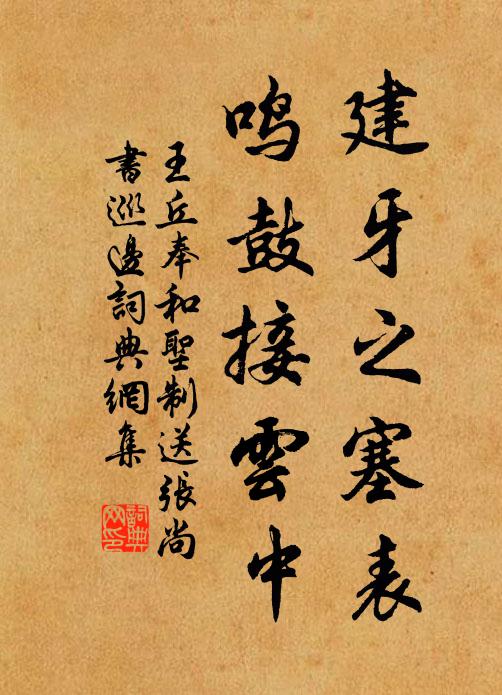 建牙之塞表
鸣鼓接雲中
王丘奉和聖制送張尚
書巡邊詞典網集
詞典
网印